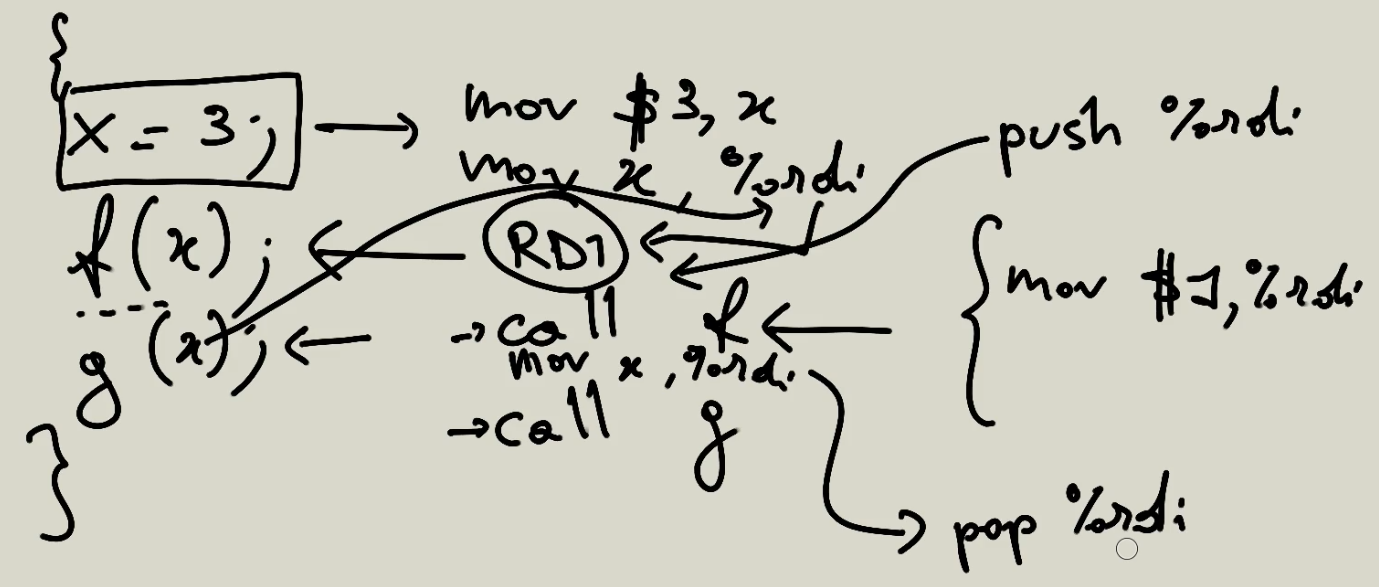 {
x = 3;
f(x);
g(x);
}
→ mov $3, x
mov x, %rdi
RDI
→ call f
mov x, %rdi
→ call g
push %rdi
{ mov $1, %rdi
pop %rdi